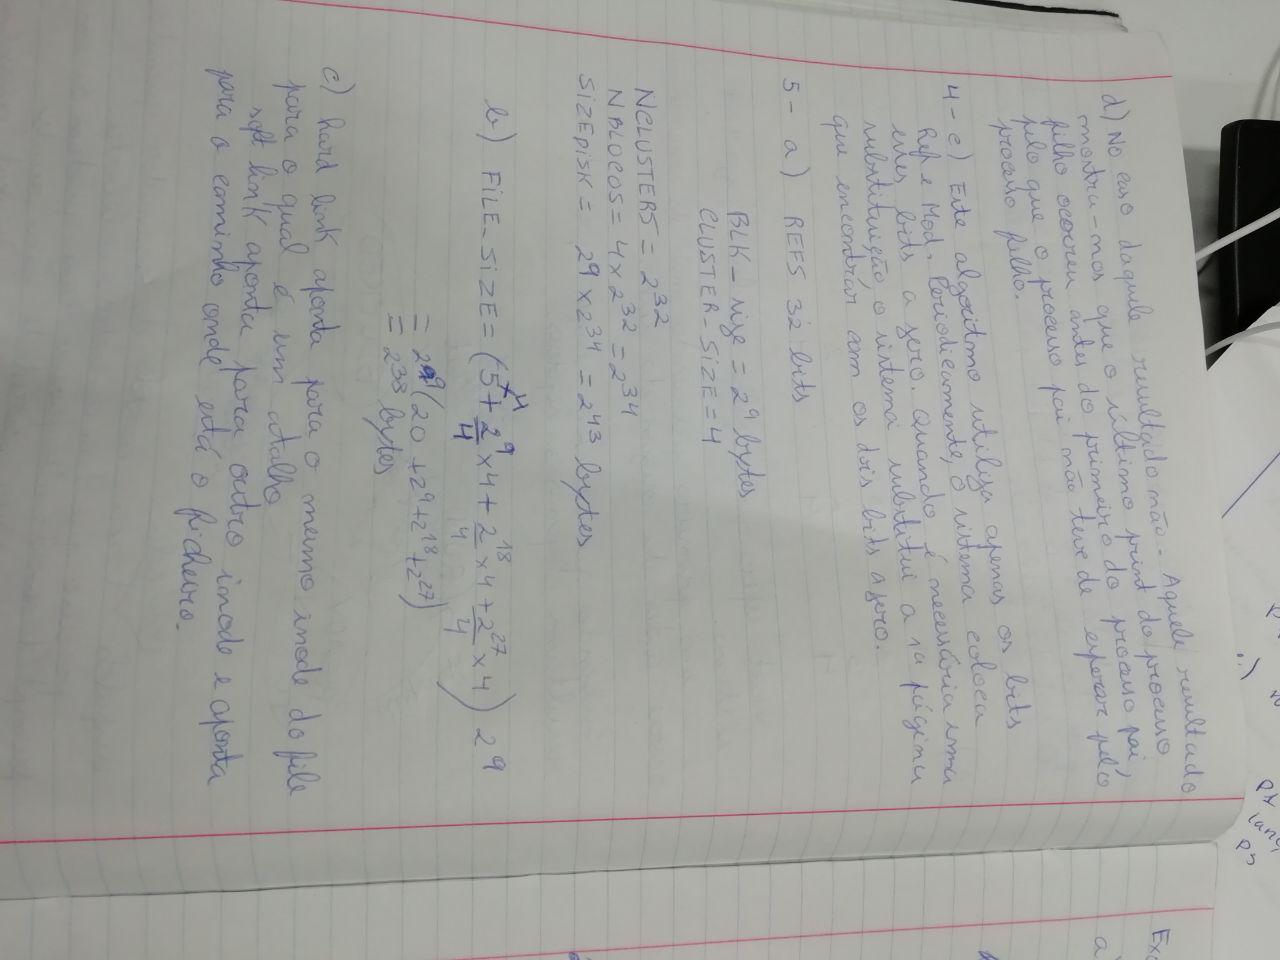 P1
lanç
P3
..)
d) No caso daquele resultado não. Aquele resultado
mostra-nos que o último print do processo
filho ocorreu antes do primeiro do processo pai,
pelo que o processo pai não teve de esperar pelo
processo filho.
4 - e) Este algoritmo utiliza apenas os bits
Ref e Mod. Periodicamente, o sistema coloca
esses bits a zero. Quando é necessária uma
substituição, o sistema substitui a 1ª página
que encontrar com os dois bits a zero.
5 - a) REFS 32 bits
BLK - size = 2^9 bytes
CLUSTER - SIZE = 4
NCLUSTERS = 2^32
NBLOCOS = 4 x 2^32 = 2^34
SIZEDISK = 2^9 x 2^34 = 2^43 bytes
b) FILE - SIZE = (5 x 4 + 2^9/4 x 4 + 2^18/4 x 4 + 2^27/4 x 4) 2^9
= 2^9 (20 + 2^9 + 2^18 + 2^27)
= 2^38 bytes
c) hard link aponta para o mesmo inode do file
para o qual é um atalho
soft link aponta para outro inode e aponta
para o caminho onde está o ficheiro.
Exc
a